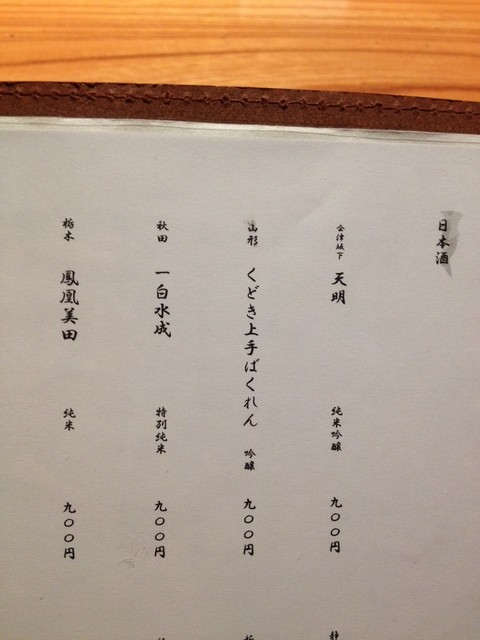 日本酒
会津坂下 天明 純米吟醸 九〇〇円
山形 くどき上手ばくれん 吟醸 九〇〇円
秋田 一白水成 特別純米 九〇〇円
栃木 鳳凰美田 純米 九〇〇円